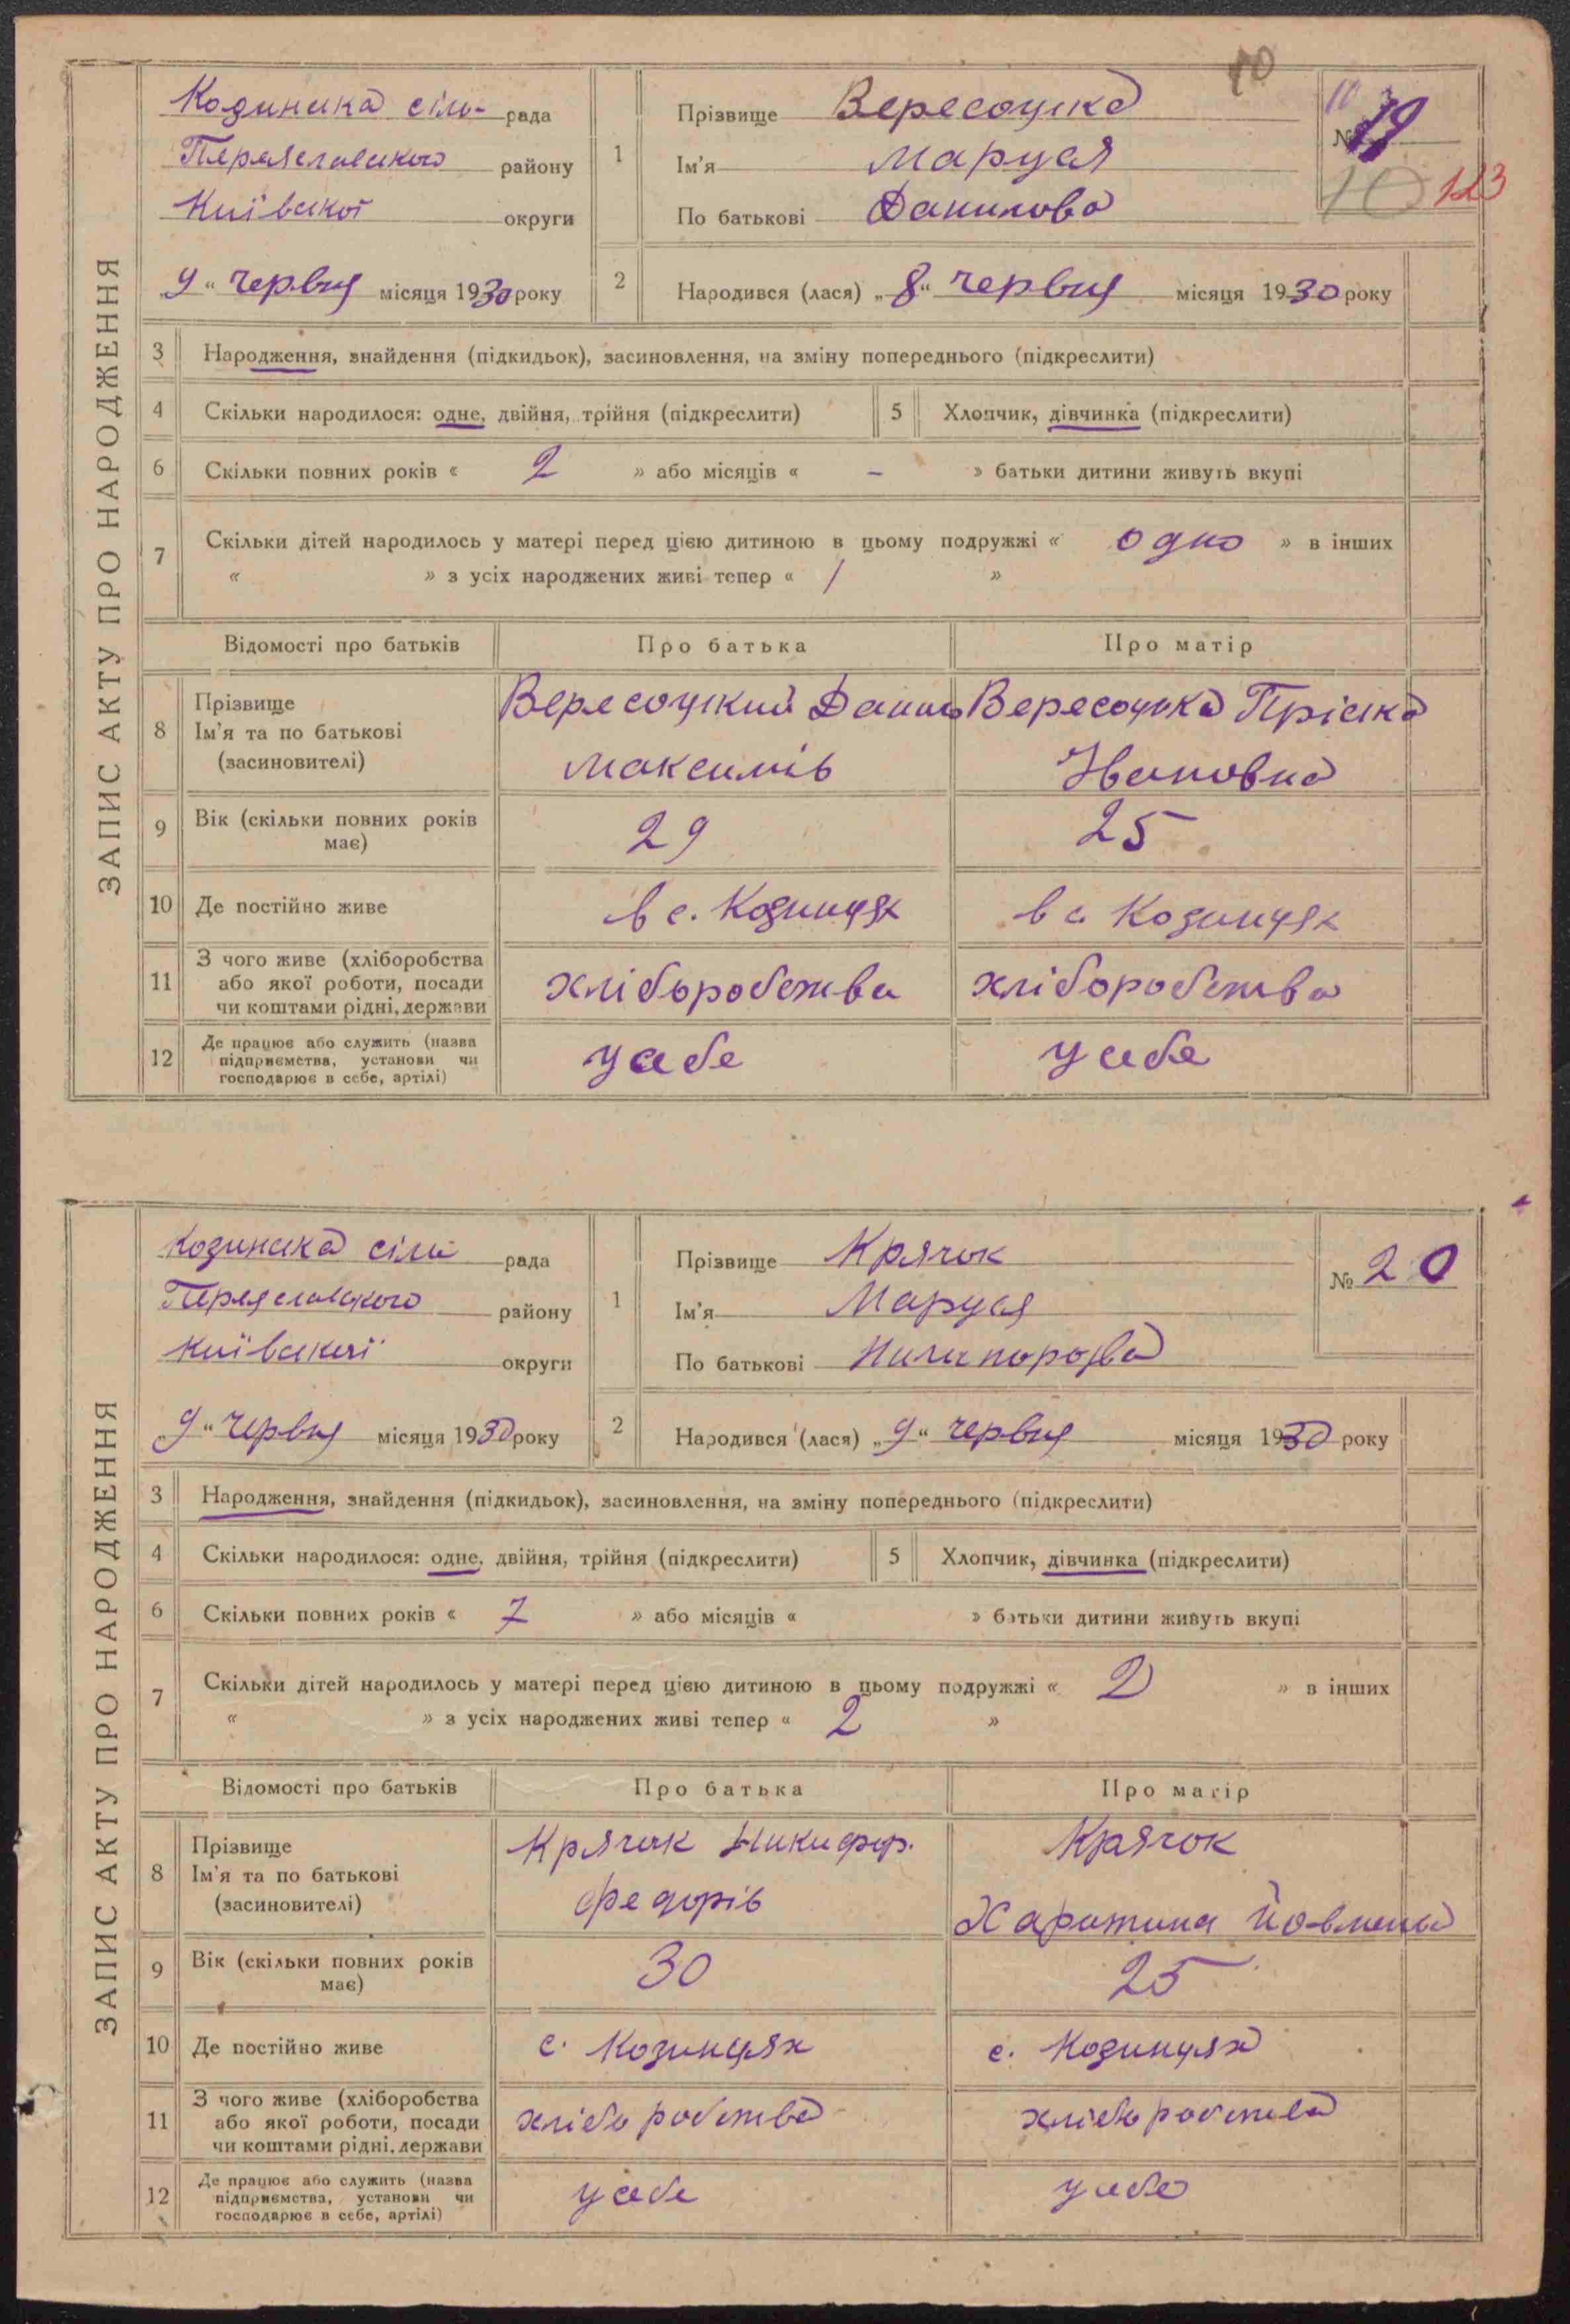 ЗАПИС АКТУ ПРО НАРОДЖЕННЯ
Козинська сіль- рада
Переяславського району
Київської округи
„9“ червня місяця 1930 року
10
1 Прізвище Вересоцька
Ім'я Маруся
По батькові Данилова
№ 19
10 123
2 Народився (лася) „8“ червня місяця 1930 року
3 Народження, знайдення (підкидьок), засиновлення, на зміну попереднього (підкреслити)
4 Скільки народилося: одне, двійня, трійня (підкреслити) 5 Хлопчик, дівчинка (підкреслити)
6 Скільки повних років « 2 » або місяців « – » батьки дитини живуть вкупі
7 Скільки дітей народилось у матері перед цією дитиною в цьому подружжі « одно » в інших
« » з усіх народжених живі тепер « 1 »
Відомості про батьків Про батька Про матір
8 Прізвище Ім'я та по батькові (засиновителі)
Вересоцький Данило Максимів
Вересоцька Пріська Івановна
9 Вік (скільки повних років має) 29 25
10 Де постійно живе в с. Козинцях в с. Козинцях
11 З чого живе (хліборобства або якої роботи, посади чи коштами рідні, держави хліборобства хліборобства
12 Де працює або служить (назва підприємства, установи чи господарює в себе, артілі) у себе у себе
ЗАПИС АКТУ ПРО НАРОДЖЕННЯ
Козинська сіль рада
Переяславського району
Київської округи
„9“ червня місяця 1930 року
1 Прізвище Крячок
Ім'я Маруся
По батькові
№ 20
2 Народився (лася) „9“ червня місяця 1930 року
3 Народження, знайдення (підкидьок), засиновлення, на зміну попереднього (підкреслити)
4 Скільки народилося: одне, двійня, трійня (підкреслити) 5 Хлопчик, дівчинка (підкреслити)
6 Скільки повних років « 7 » або місяців « » батьки дитини живуть вкупі
7 Скільки дітей народилось у матері перед цією дитиною в цьому подружжі « 2 » в інших
« » з усіх народжених живі тепер « 2 »
Відомості про батьків Про батька Про матір
8 Прізвище Ім'я та по батькові (засиновителі)
Крячок Никифор. Федорів
Крячок Харитина
9 Вік (скільки повних років має) 30 25
10 Де постійно живе с. Козинцях с. Козинцях
11 З чого живе (хліборобства або якої роботи, посади чи коштами рідні, держави хліборобства хліборобства
12 Де працює або служить (назва підприємства, установи чи господарює в себе, артілі) у себе у себе